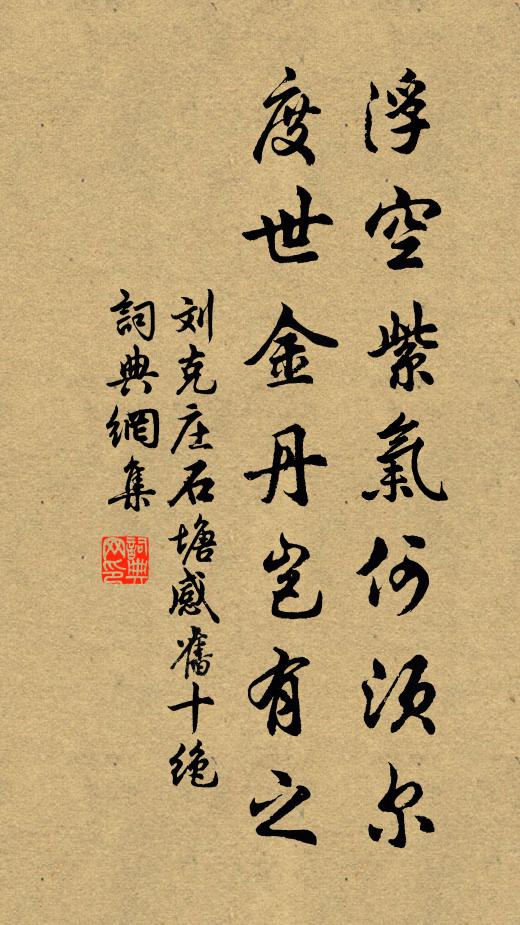 浮空紫氣何須尔
度世金丹岂有之
刘克庄石塘感舊十绝
詞典網集
詞典网印